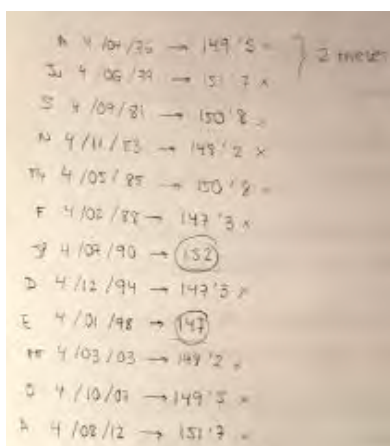 A 4/04/76 → 149'5 } 2 meses
Ju 4/06/79 → 151'7 x
S 4/09/81 → 150'8
N 4/11/83 → 148'2 x
My 4/05/85 → 150'8
F 4/02/88 → 147'3 x
4/07/90 → 152
D 4/12/94 → 147'3 x
E 4/01/98 → 147
4/03/03 → 148'2
O 4/10/07 → 149'5 x
A 4/08/12 → 151'7